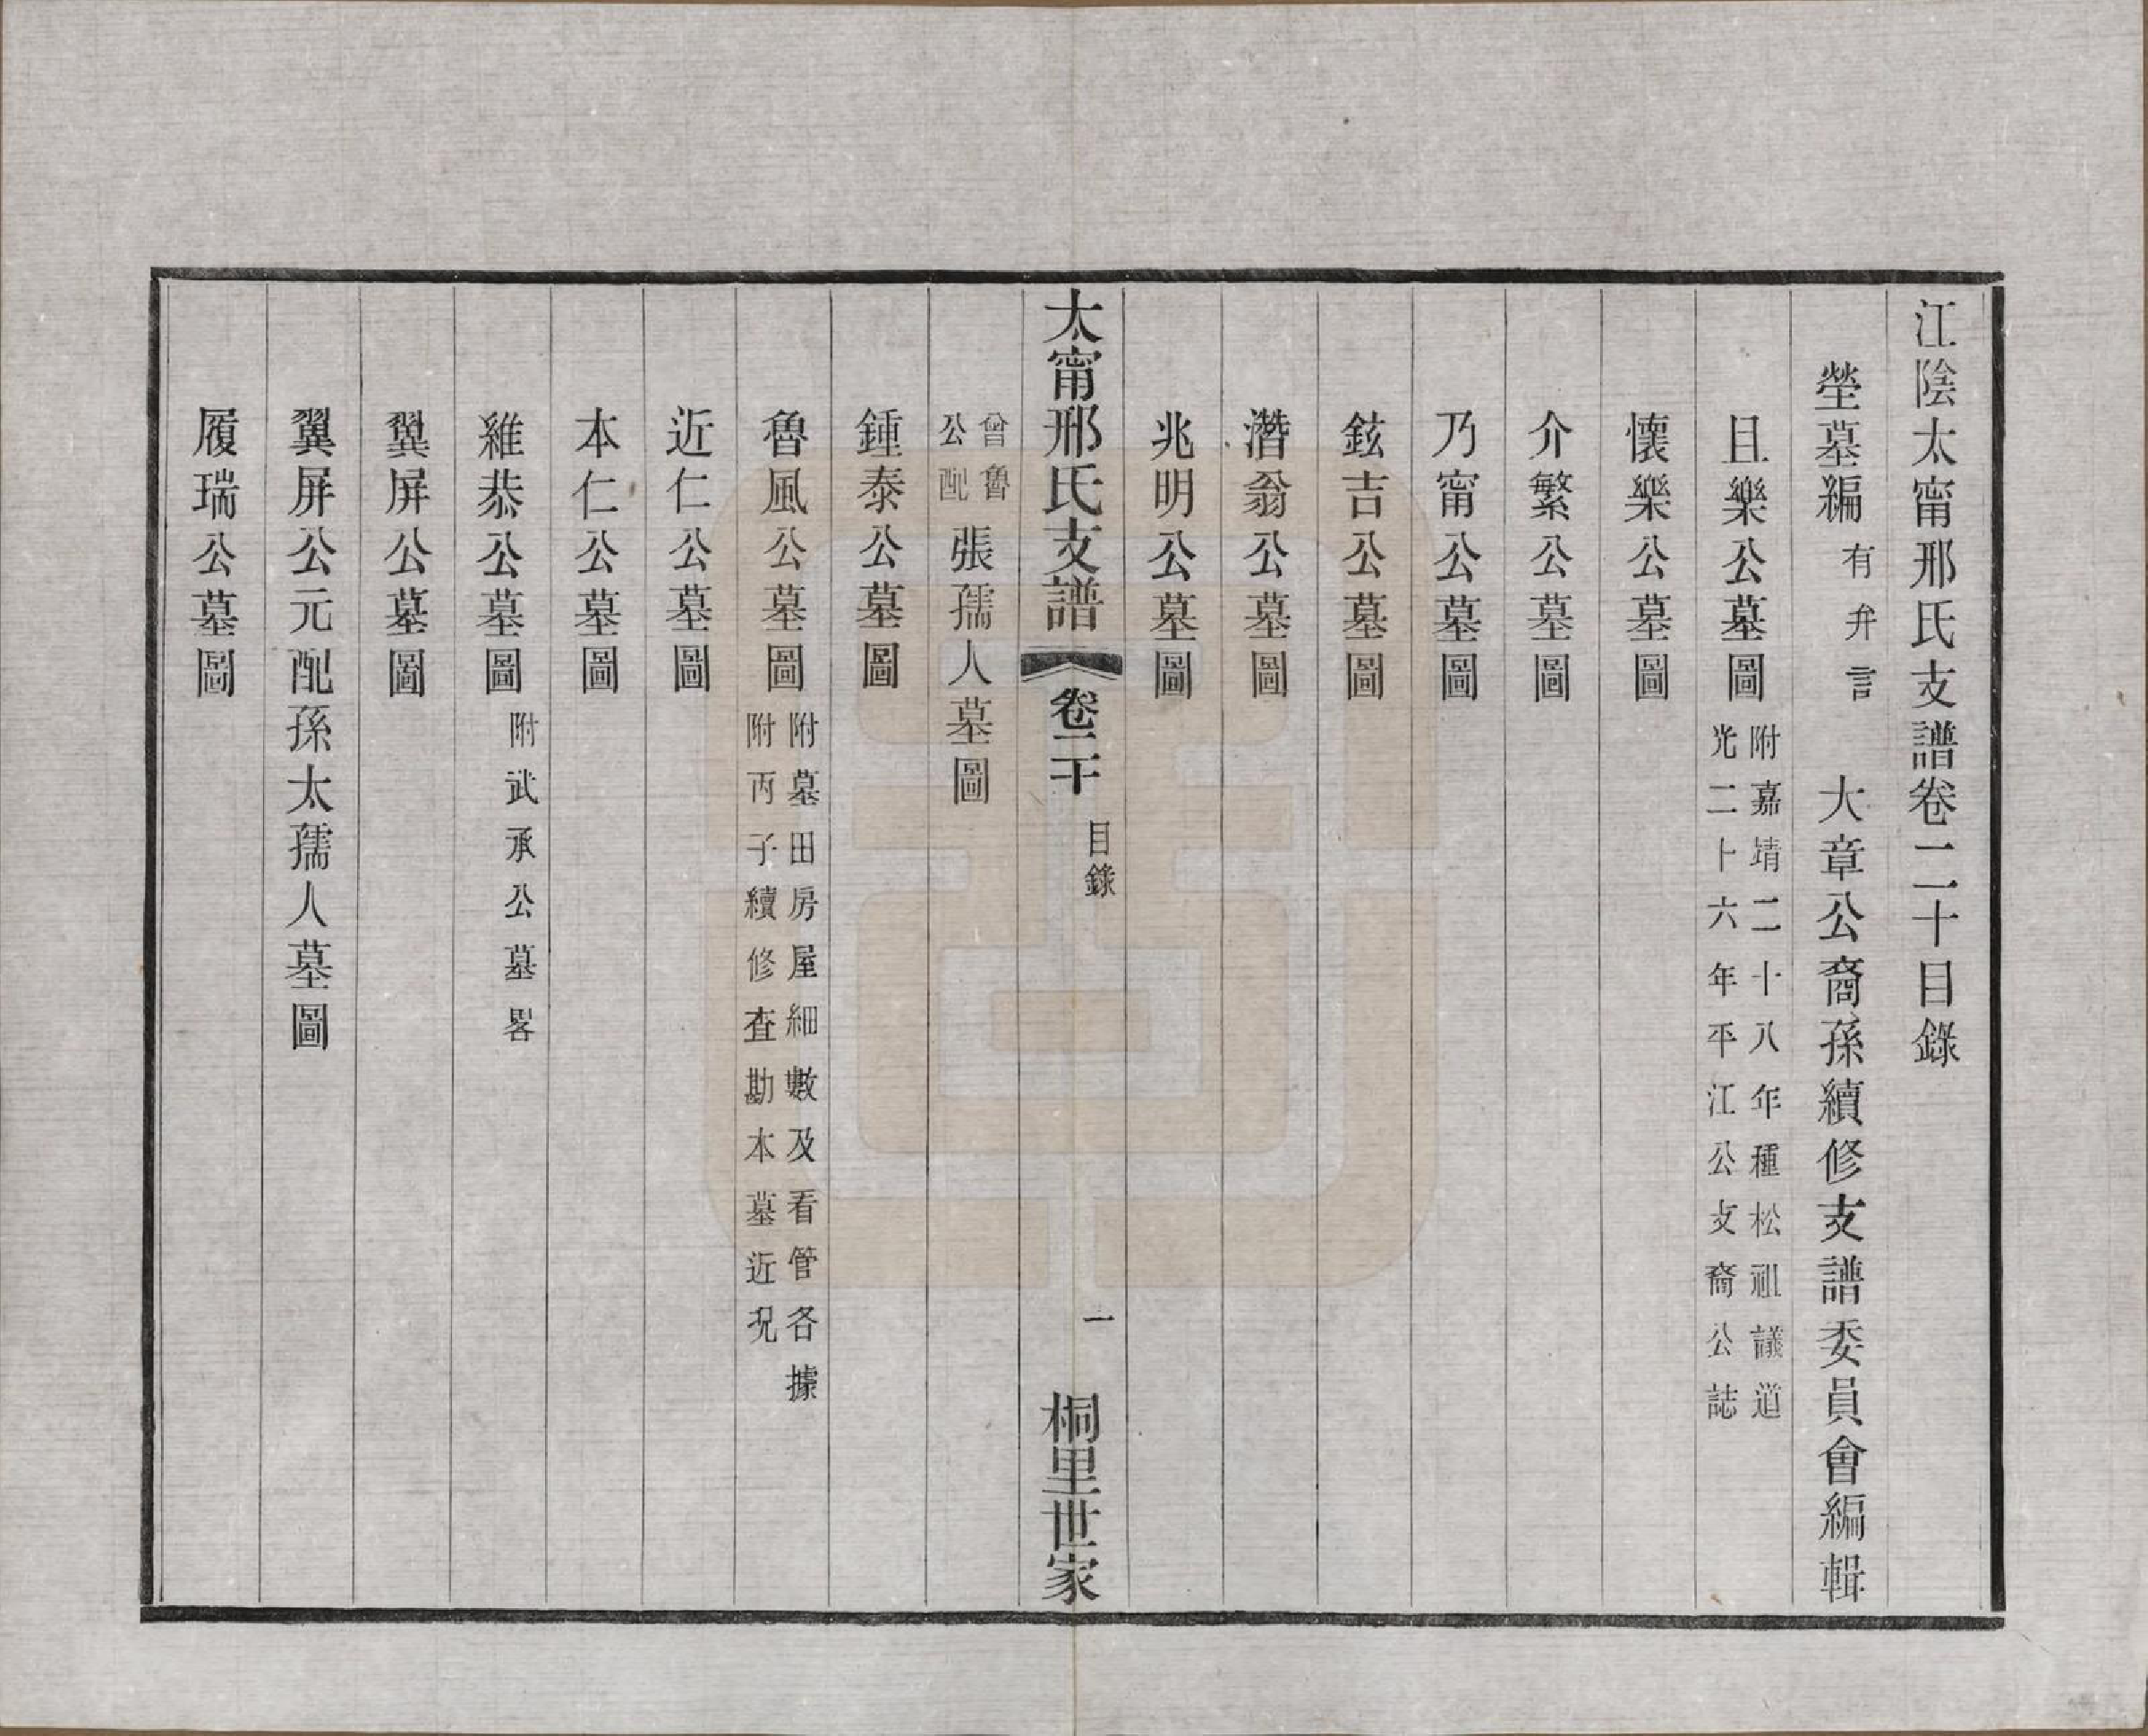 江陰太甯邢氏支譜卷二十目錄
塋墓編 有弁言 大章公裔孫續修支譜委員會編輯
且樂公墓圖 附嘉靖二十八年種松祖議道
光二十六年平江公支裔公誌
懷樂公墓圖
介繁公墓圖
乃甯公墓圖
鉉吉公墓圖
潛翁公墓圖
兆明公墓圖
太甯邢氏支譜 卷二十 目錄 一 桐里世家
曾魯
公配 張孺人墓圖
鍾泰公墓圖
魯風公墓圖 附墓田房屋細數及看管各據
附丙子續修查勘本墓近況
近仁公墓圖
本仁公墓圖
維恭公墓圖 附武承公墓畧
翼屏公墓圖
翼屏公元配孫太孺人墓圖
履瑞公墓圖